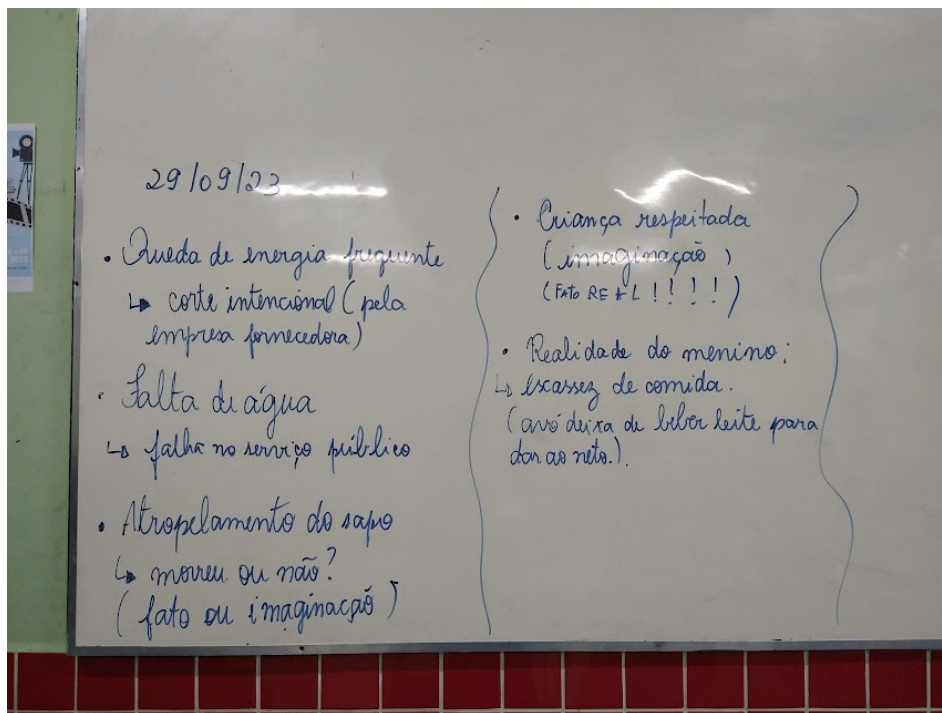 29/09/23
• Queda de energia frequente
↳ corte intencional (pela
empresa fornecedora)
• Falta de água
↳ falha no serviço público
• Atropelamento do sapo
↳ morreu ou não?
(fato ou imaginação)
• Criança respeitada
(imaginação)
(FATO REAL!!!!)
• Realidade do menino:
↳ escassez de comida.
(avó deixa de beber leite para
dar ao neto.).